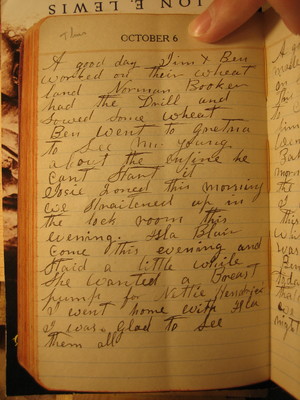 ION E. LEWIS
Thurs
OCTOBER 6
A good day Jim & Ben
worked on their wheat
land Norman Booker
had the Drill and
Sowed some wheat
Ben went to Gretna
to See Mr. Young
about the engine he
cant start it
Josie Ironed this morning
we straitened up in
the lock room this
evening. Ila Blair
Come this evening and
Staid a little while
She wanted a Breast
pump for Nittie
I went home with Ila
I was Glad to See
them all